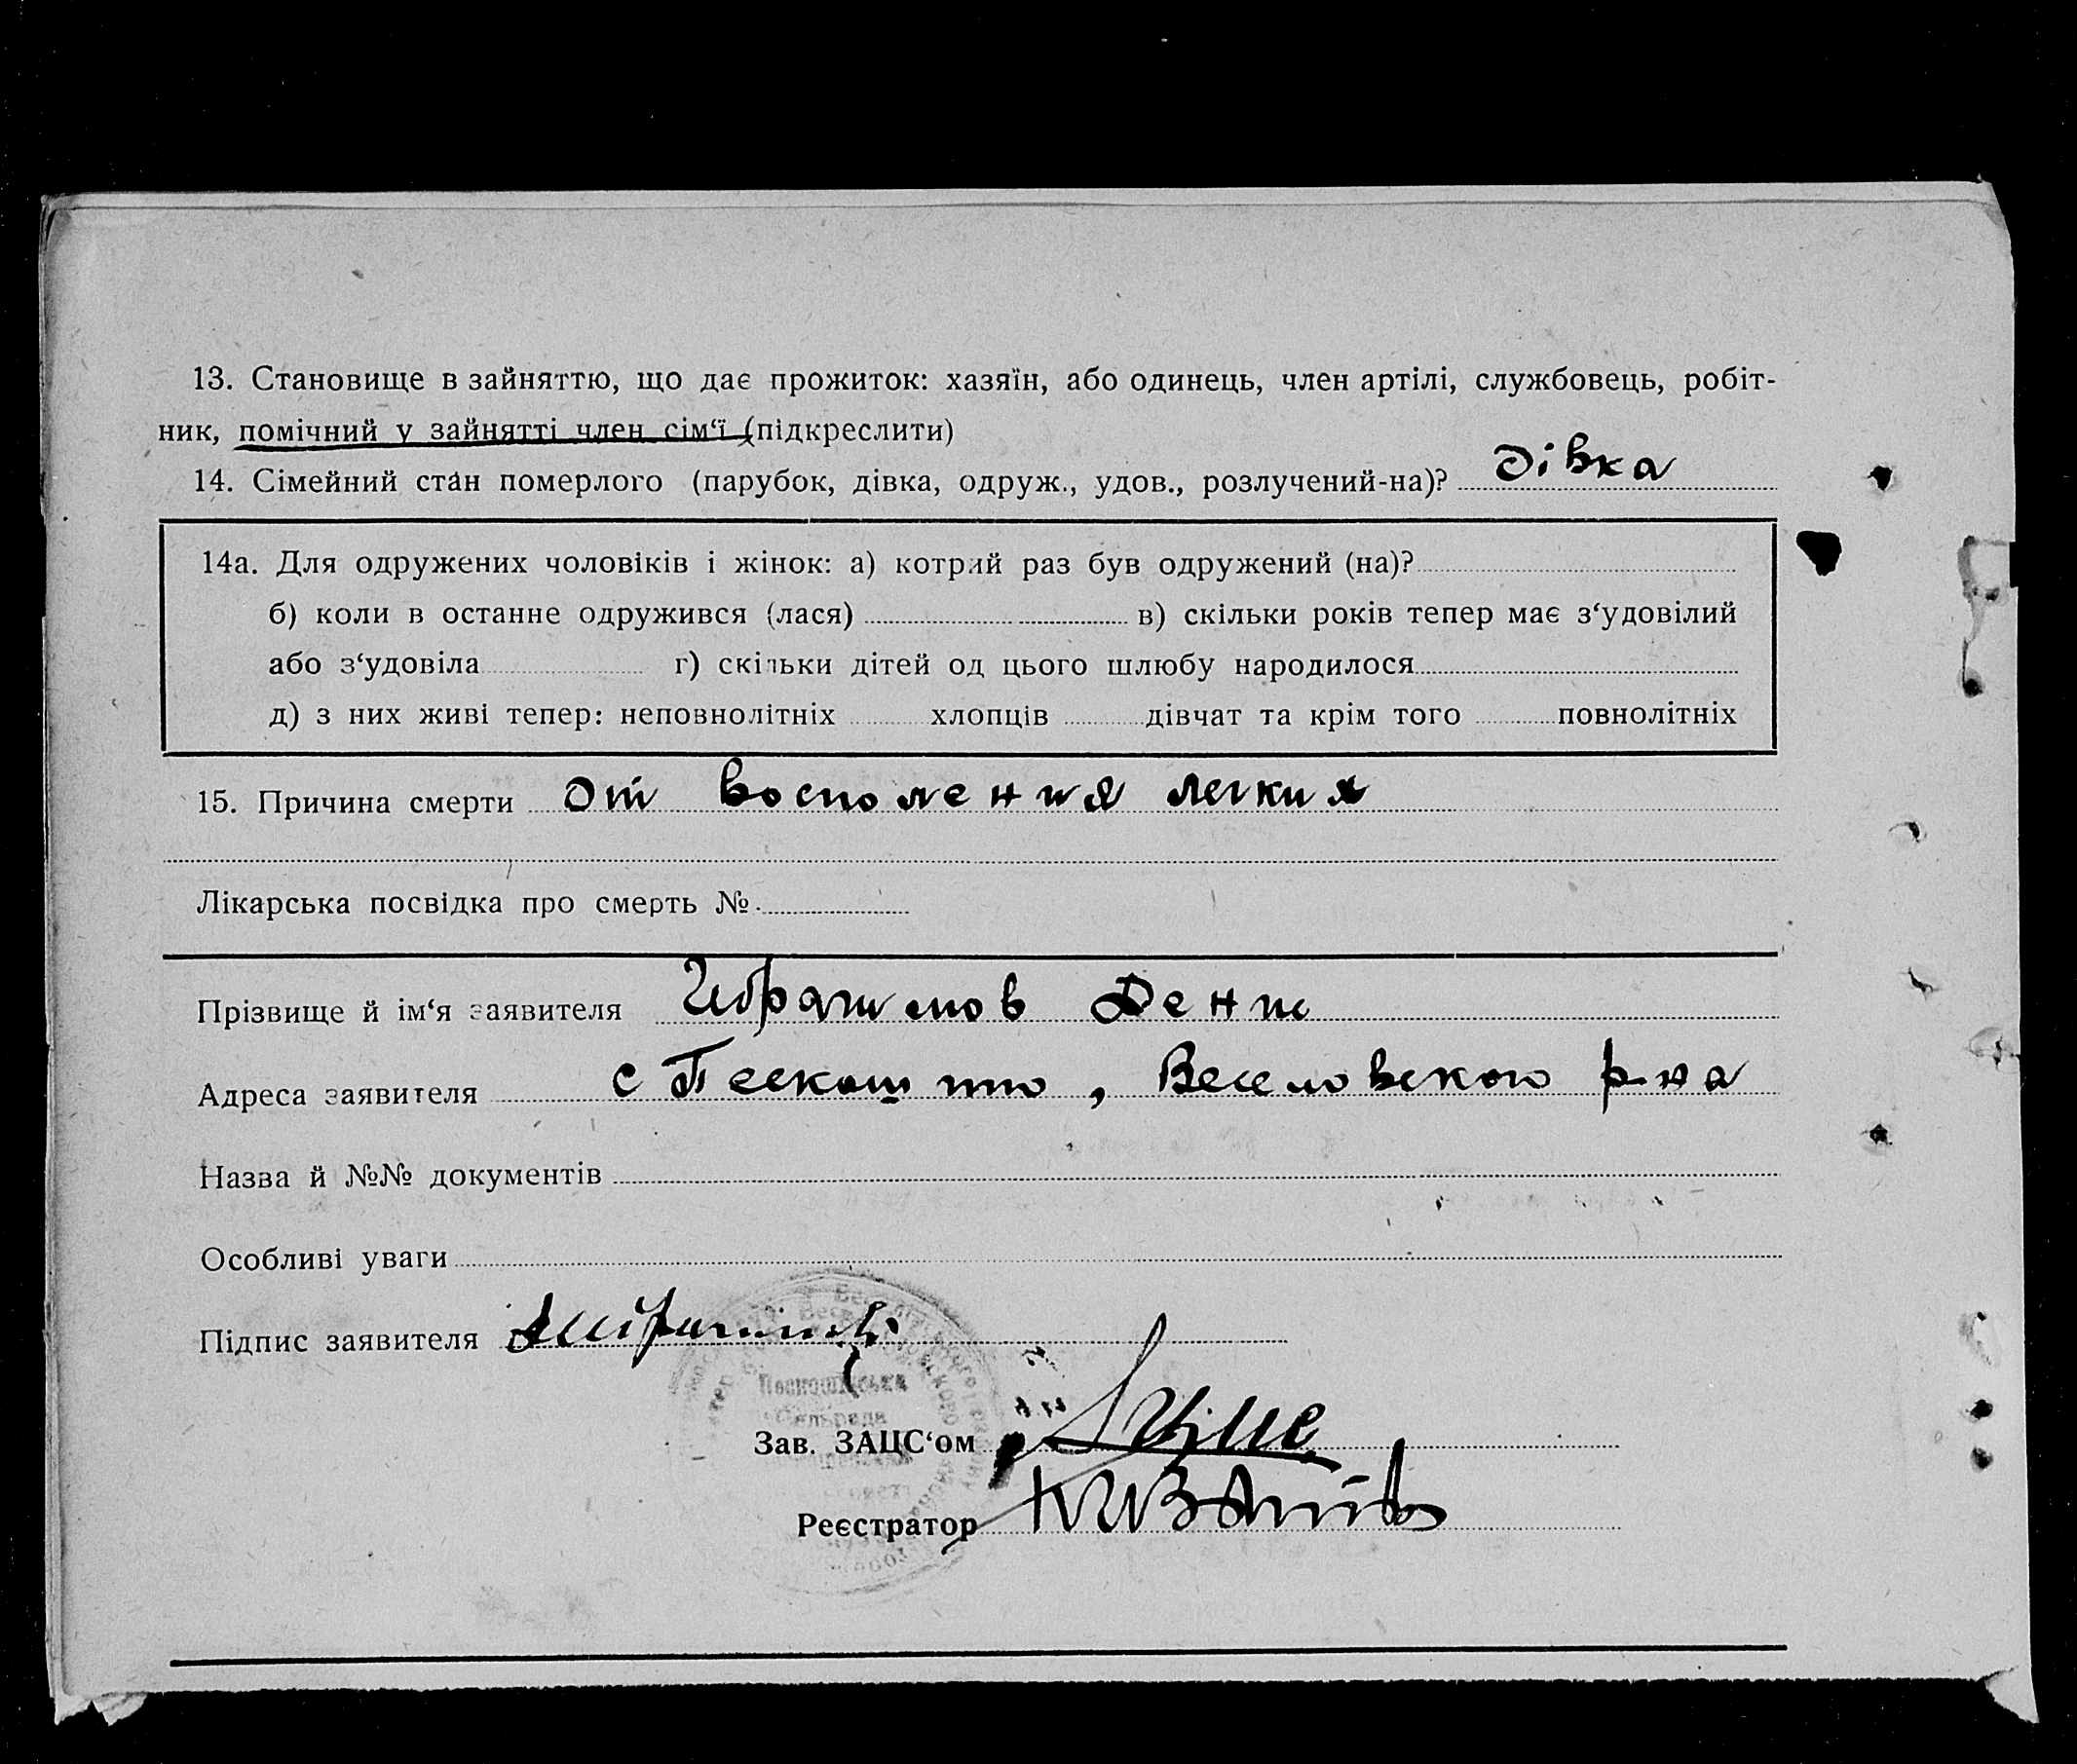 13. Становище в зайняттю, що дає прожиток: хазяїн, або одинець, член артілі, службовець, робіт-
ник, помічний у зайнятті член сім‘ї (підкреслити)
14. Сімейний стан померлого (парубок, дівка, одруж., удов., розлучений-на)? дівка
14а. Для одружених чоловіків і жінок: а) котрий раз був одружений (на)?
б) коли в останне одружився (лася) в) скільки років тепер має з‘удовілий
або з‘удовіла г) скільки дітей од цього шлюбу народилося
д) з них живі тепер: неповнолітніх хлопців дівчат та крім того повнолітніх
15. Причина смерти От восполения легкия
Лікарська посвідка про смерть №
Прізвище й ім‘я заявителя Ибрагимов Денис
Адреса заявителя с Пескошто, Веселовского р-на
Назва й №№ документів
Особливі уваги
Підпис заявителя
Сельрада
Зав. ЗАЦС‘ом
Реєстратор